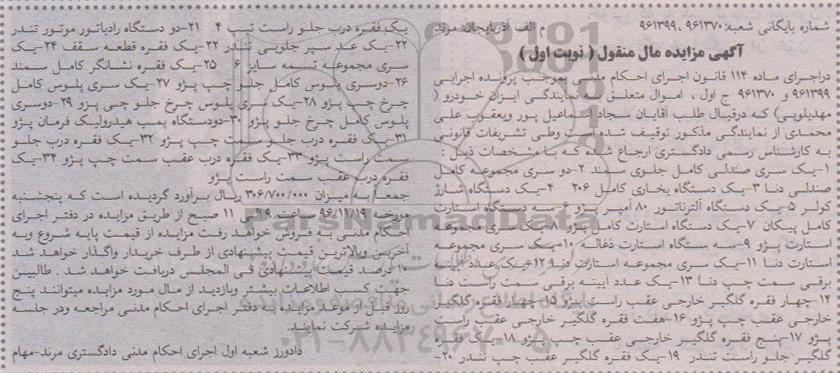 شماره بایگانی شعبه: ۹۶۱۳۷۰ ، ۹۶۱۳۹۹ م الف آذربایجان، مرند
آگهی مزایده مال منقول ( نوبت اول )
دراجرای ماده ۱۱۴ قانون اجرای احکام مدنی بموجب پرونده اجرایی
۹۶۱۳۹۹ و ۹۶۱۳۷۰ ج اول ، اموال متعلق به نمایندگی ایران خودرو (
مهدیلویی) که درقبال طلب آقایان سجاد اسماعیل پور ویعقوب علی
محمدی از نمایندگی مذکور توقیف شده است وطی تشریفات قانونی
به کارشناس رسمی دادگستری ارجاع شده که با مشخصات ذیل :
۱-یک سری صندلی کامل جلوی سمند ۲-دو سری مجموعه کامل
صندلی دنا ۳-یک دستگاه بخاری کامل ۲۰۶ ۴-یک دستگاه شارژ
کولر ۵-یک دستگاه آلترناتور ۸۰ آمپر پژو ۶-سه دستگاه استارت
کامل پیکان ۷-یک دستگاه استارت کامل پژو ۸-یک سری مجموعه
استارت پژو ۹-سه دستگاه استارت ذغاله ۱۰-یک سری مجموعه
استارت دنا ۱۱-یک سری مجموعه استارت دنا ۱۲-یک عدد آیینه
برقی سمت چپ دنا ۱۳-یک عدد آیینه برقی سمت راست دنا
۱۴-چهار فقره گلگیر خارجی عقب راست پژو ۱۵-چهار فقره گلگیر
خارجی عقب چپ پژو ۱۶-هفت فقره گلگیر خارجی عقب راست
پژو ۱۷-پنج فقره گلگیر خارجی عقب چپ پژو ۱۸-یک فقره
گلگیر جلو راست تندر ۱۹-یک فقره گلگیر عقب چپ تندر ۲۰-
یک فقره درب جلو راست تیپ ۴ ۲۱-دو دستگاه رادیاتور موتور تندر
۲۲-یک عدد سپر جلویی تندر ۲۳-یک فقره قطعه سقف ۲۴-یک
سری مجموعه تسمه سایز ۶ ۲۵-یک فقره نشانگر کامل سمند
۲۶-دوسری پلوس کامل جلو چپ پژو ۲۷-یک سری پلوس کامل
چرخ چپ پژو ۲۸-یک سری پلوس چرخ جلو چپ پژو ۲۹-دوسری
پلوس کامل چرخ جلو پژو ۳۰-دودستگاه پمپ هیدرولیک فرمان پژو
۳۱-یک فقره درب جلو سمت چپ پژو ۳۲-یک فقره درب جلو
سمت راست پژو ۳۳-یک فقره درب عقب سمت چپ پژو ۳۴-یک
فقره درب عقب سمت راست پژو
جمعا به میزان ۳۰۶/۷۰۰/۰۰۰ ریال برآورد گردیده است که پنجشنبه
مورخه ۹۶/۱۱/۱۹ ساعت ۹ الی ۱۱ صبح از طریق مزایده در دفتر اجرای
احکام مدنی به فروش خواهد رفت مزایده از قیمت پایه شروع وبه
آخرین وبالاترین قیمت پیشنهادی از طرف خریدار واگذار خواهد شد
۱۰درصد قیمت پیشنهادی فی المجلس دریافت خواهد شد . طالبین
جهت کسب اطلاعات بیشتر وبازدید از مال مورد مزایده میتوانند پنج
روز قبل از موعد مزایده به دفتر اجرای احکام مدنی مراجعه ودر جلسه
مزایده شرکت نمایند.
دادورز شعبه اول اجرای احکام مدنی دادگستری مرند-مهام
ParsNamadData
۰۲۱-۸۸۳۴۹۶۷۰-۵